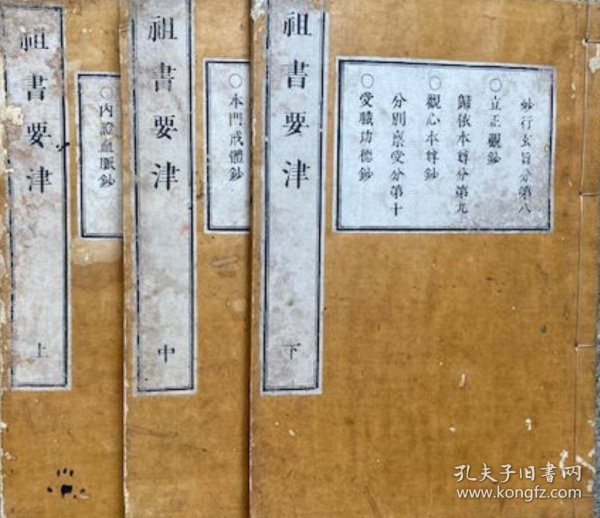 祖書要津
下
妙行玄旨分第八
○立正觀鈔
歸依本尊分第九
○觀心本尊鈔
分別稟受分第十
○受職功德鈔
祖書要津
中
○本門戒體鈔
祖書要津
上
○內證血脈鈔
孔夫子旧书网
www.kongfz.com